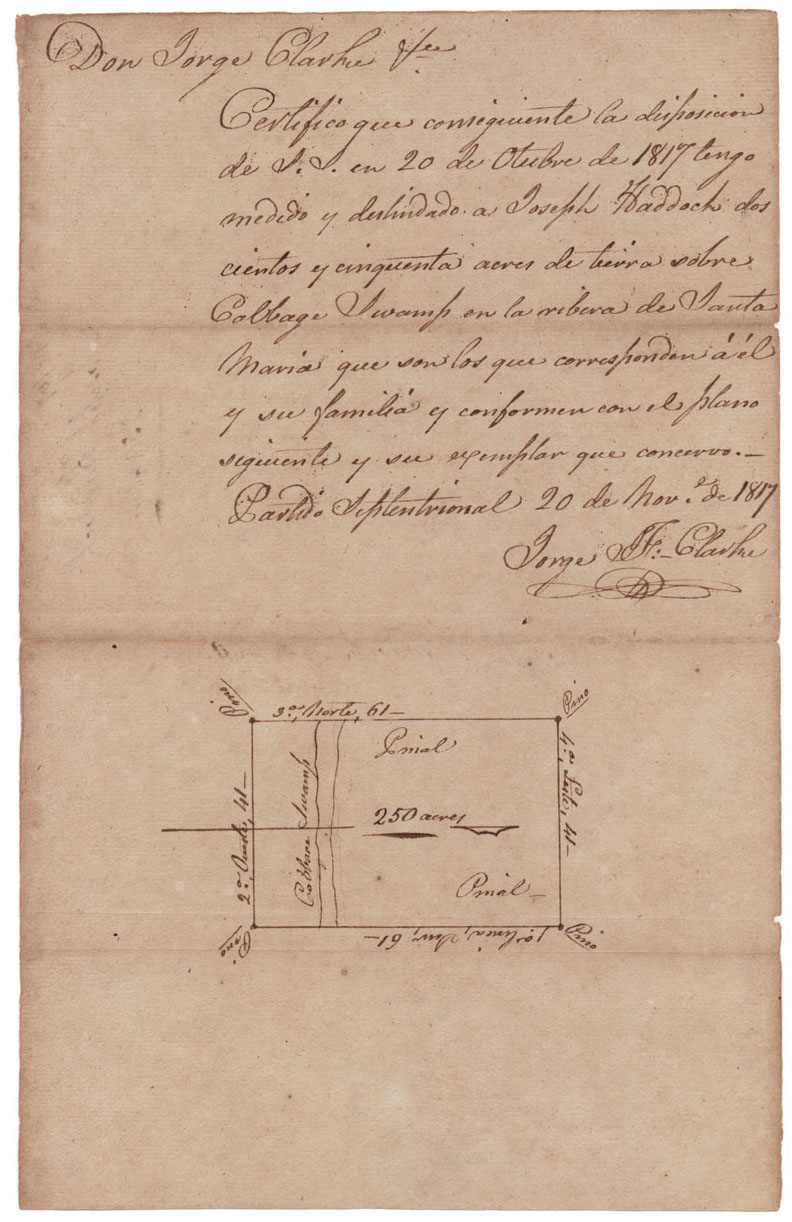 Don Jorge Clarke &ce
Certifico que consiguiente la disposicion
de S. S. en 20 de Otubre de 1817 tengo
medido y deslindado a Joseph Haddock dos
cientos y cinquenta acres de tierra sobre
Cabbage Swamp en la ribera de Santa
Maria que son los que corresponden á él
y su familiá y conformen con el plano
siguiente y su exemplar que concervo.—
Partido Septentrional 20 de Nov.e de 1817
Jorge J. F. Clarke
Pino
3.a, Norte, 61—
Pino
Pinal
4.a, Leste, 41—
2.a, Oueste, 41—
Cabbage Swamp
250 acres
Pinal—
Pino
1.a linea, Sur, 61—
Pino